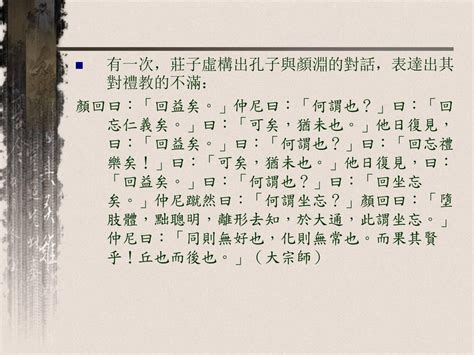 有一次，莊子虛構出孔子與顏淵的對話，表達出其
對禮教的不滿：
顏回曰：「回益矣。」仲尼曰：「何謂也？」曰：「回
忘仁義矣。」曰：「可矣，猶未也。」他日復見，
曰：「回益矣。」曰：「何謂也？」曰：「回忘禮
樂矣！」曰：「可矣，猶未也。」他日復見，曰：
「回益矣。」曰：「何謂也？」曰：「回坐忘
矣。」仲尼蹴然曰：「何謂坐忘？」顏回曰：「墮
肢體，黜聰明，離形去知，於大通，此謂坐忘。」
仲尼曰：「同則無好也，化則無常也。而果其賢
乎！丘也而後也。」（大宗師）